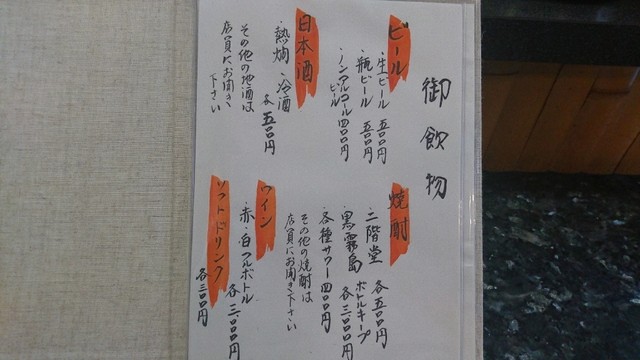 御飲物
ビール
・生ビール 五〇〇円
・瓶ビール 五〇〇円
・ノンアルコールビール 四〇〇円
日本酒
・熱燗・冷酒 各五〇〇円
その他の地酒は
店員にお聞き
下さい
焼酎
・二階堂 各五〇〇円
・黒霧島 ボトルキープ 各三〇〇〇円
・各種サワー四〇〇円
その他の焼酎は
店員にお聞き下さい
ワイン
・赤・白フルボトル
各三〇〇〇円
ソフトドリンク
各三〇〇円